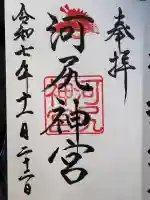 奉拝
河尻神宮
令和七年十一月二十一日